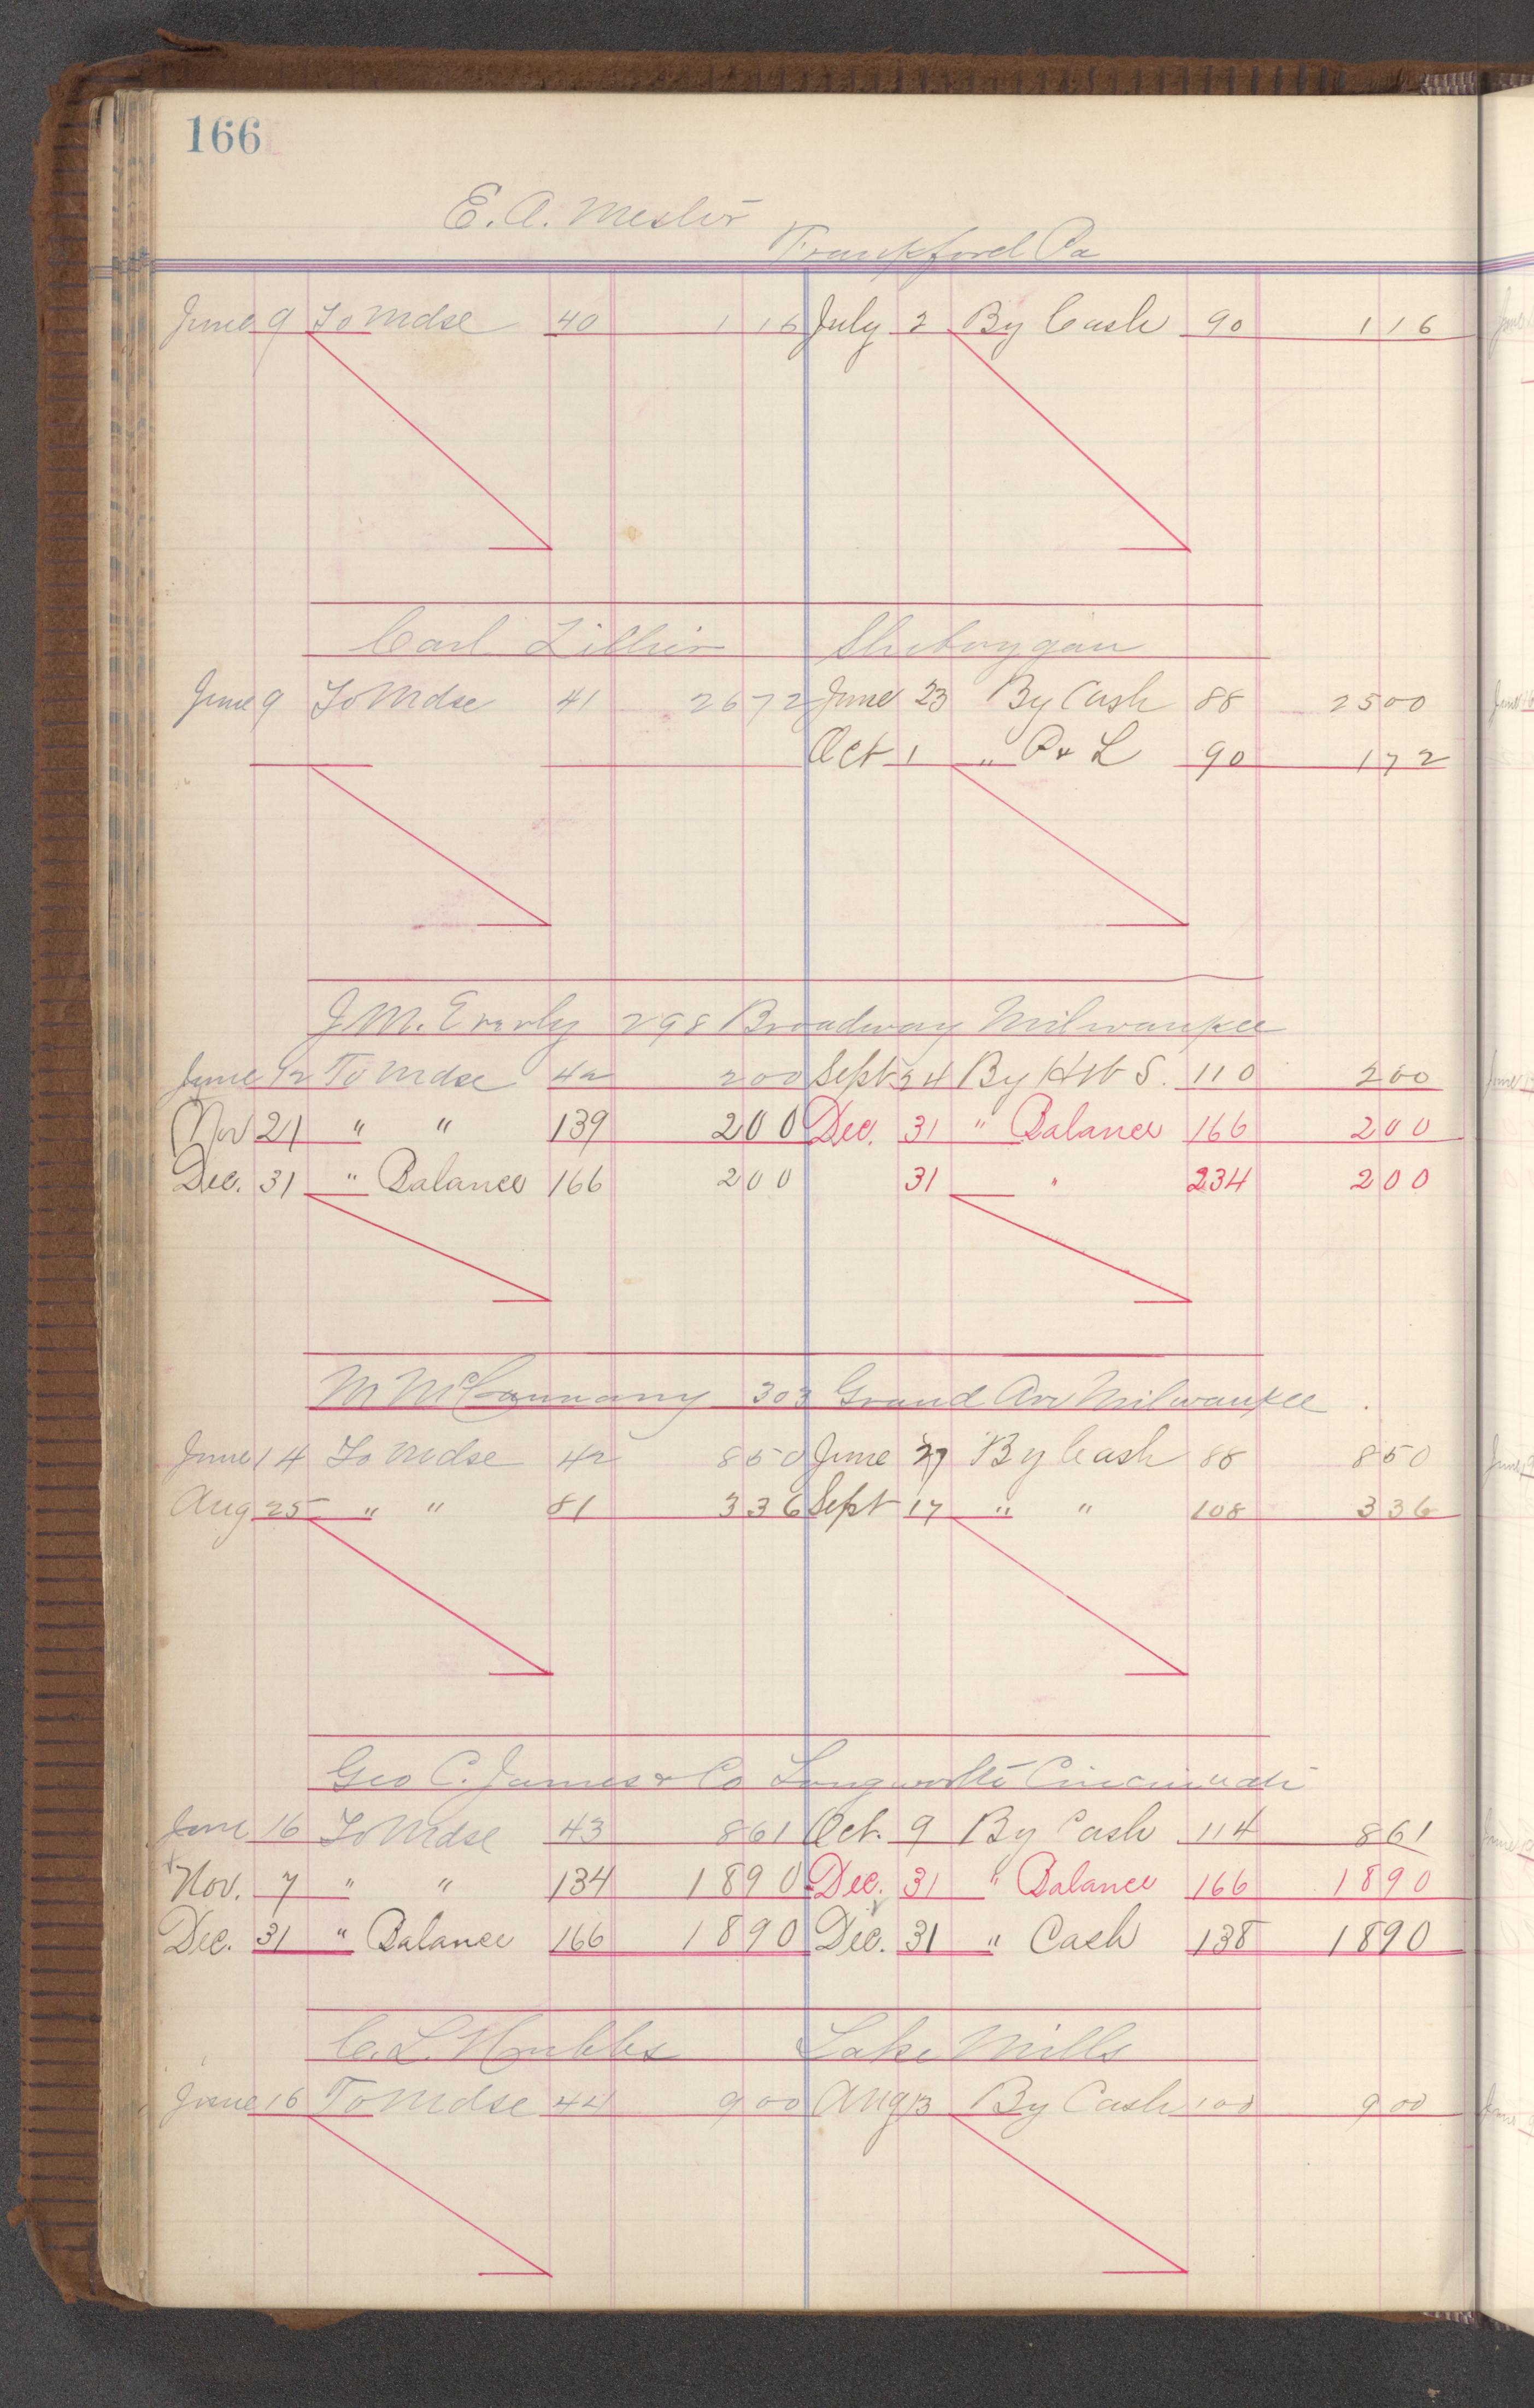 166
E. A. Mesler
Frankford Pa
June 9 To Mdse 40 1 16 July 2 By Cash 90 1 16
Carl Sheboygan
June 9 To Mdse 41 26 72 June 23 By Cash 88 25 00
Oct 1 " P & L 90 1 72
J. M. Everly 298 Broadway Milwaukee
June 12 To Mdse 42 2 00 Sept 24 By 110 2 00
Nov 21 " " 139 2 00 Dec. 31 " Balance 166 2 00
Dec. 31 " Balance 166 2 00 31 " 234 2 00
M 303 Grand Ave Milwaukee
June 14 To Mdse 42 8 50 June 27 By Cash 88 8 50
Aug 25 " " 81 3 36 Sept 17 " " 108 3 36
Geo C. James & Co Cincinnati
June 16 To Mdse 43 8 61 Oct. 9 By Cash 114 8 61
Nov. 7 " " 134 18 90 Dec. 31 " Balance 166 18 90
Dec. 31 " Balance 166 18 90 Dec. 31 " Cash 138 18 90
C. L. Hubbs Lake Mills
June 16 To Mdse 44 9 00 Aug 13 By Cash 100 9 00